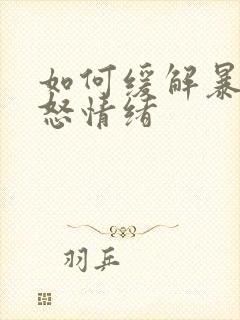 如何缓解暴
怒情绪
羽乒